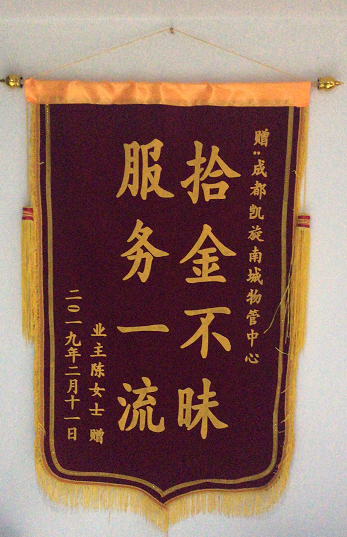 赠:成都凯旋南城物管中心
拾金不昧
服务一流
业主陈女士 赠
二〇一九年二月十一日